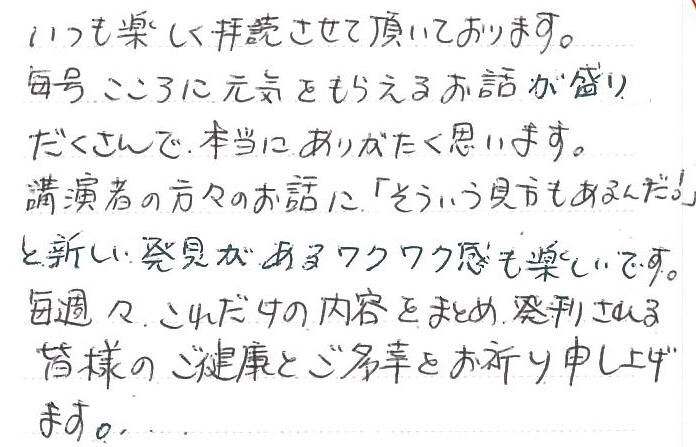 いつも楽しく拝読させて頂いております。
毎号、こころに元気をもらえるお話が盛り
だくさんで、本当にありがたく思います。
講演者の方々のお話に、「そういう見方もあるんだ!」
と新しい発見があるワクワク感も楽しいです。
毎週々、これだけの内容をまとめ、発刊される
皆様のご健康とご多幸をお祈り申し上げ
ます。....